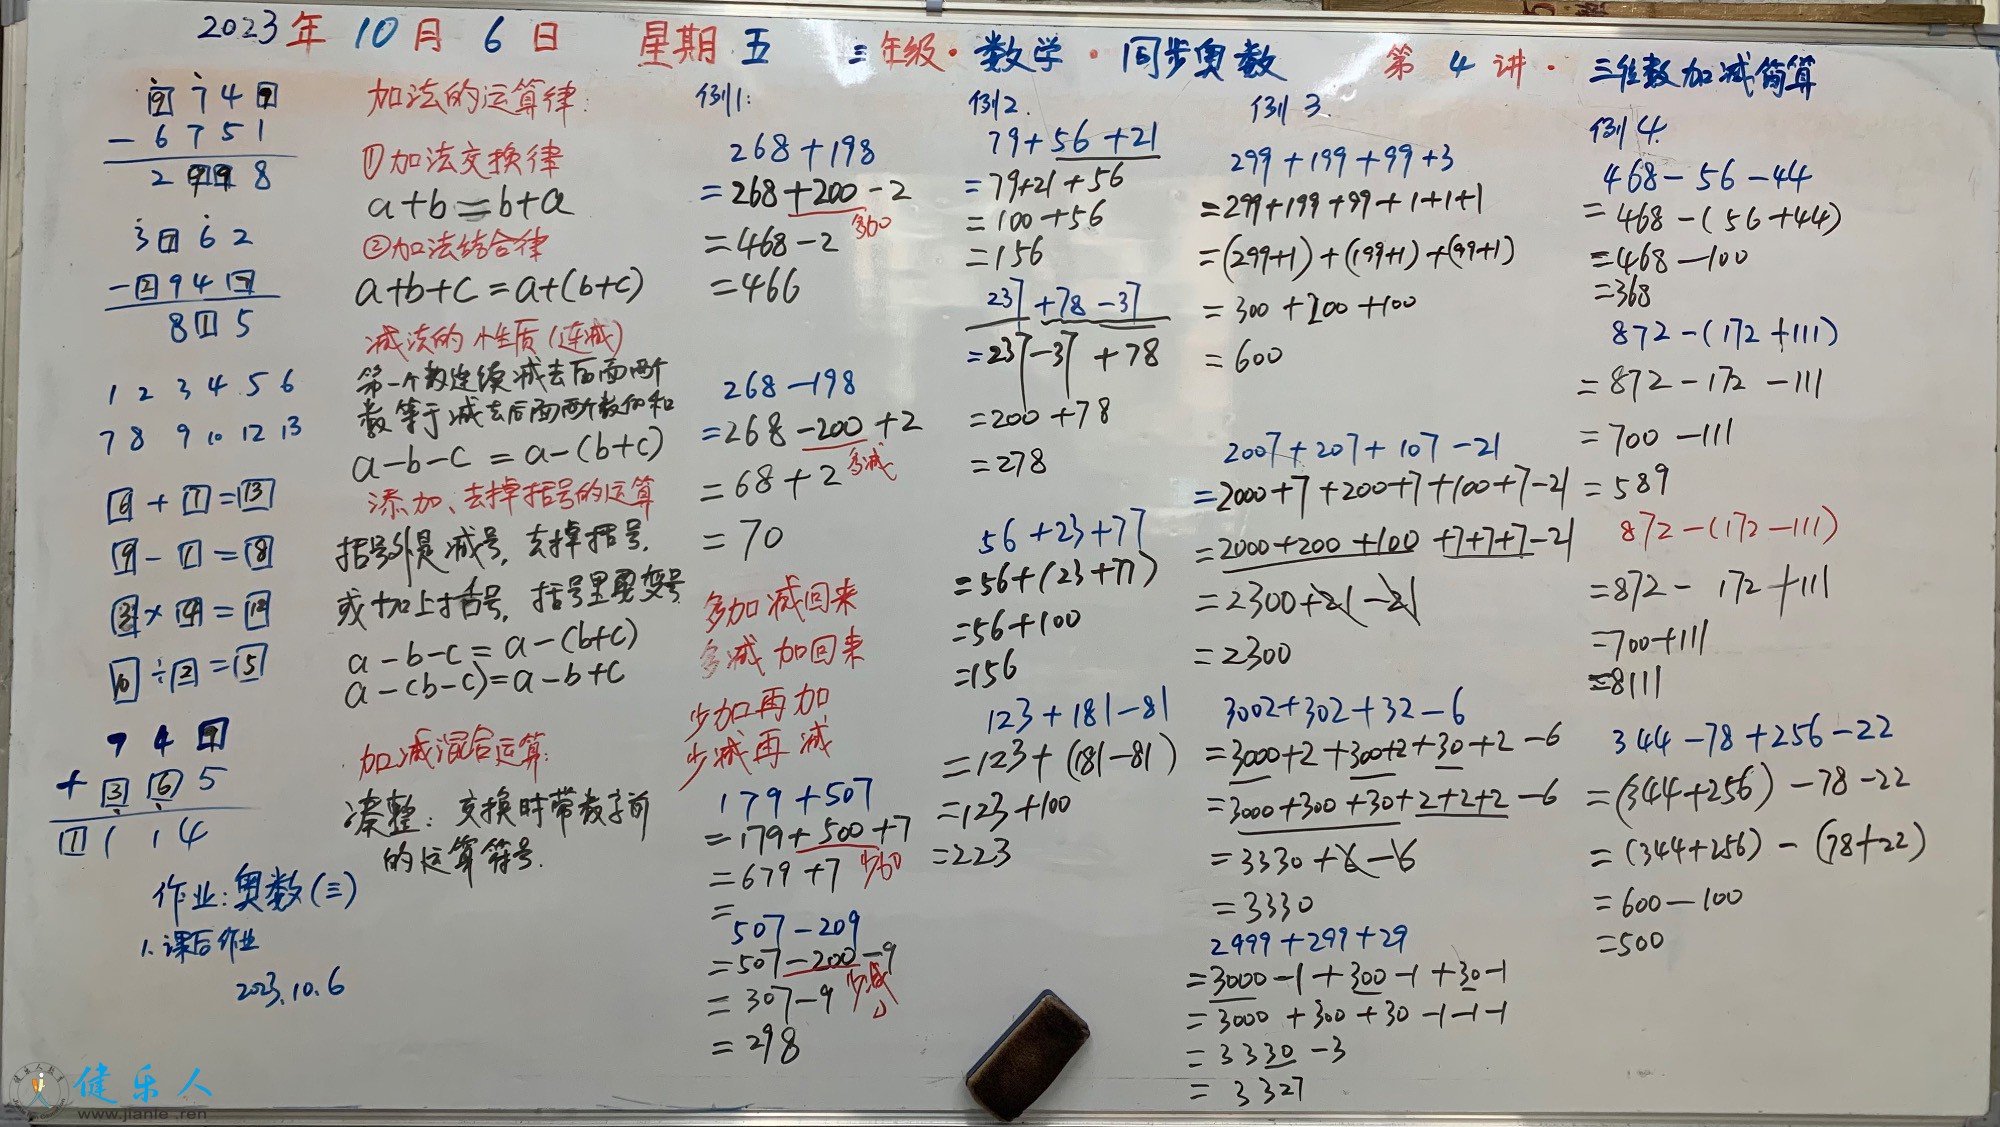 2023年10月6日 星期五 三年级·数学·同步奥数 第4讲·三位数加减简算
9 7 4 9
- 6 7 5 1
2 9 9 8
3 7 6 2
- 2 9 4 7
8 1 5
1 2 3 4 5 6
7 8 9 10 12 13
6 + 7 = 13
9 - 1 = 8
3 × 4 = 12
10 ÷ 2 = 5
7 4 9
+ 3 6 5
1 1 1 4
作业:奥数(三)
1.课后作业
2023.10.6
加法的运算律:
①加法交换律
a+b=b+a
②加法结合律
a+b+c=a+(b+c)
减法的性质(连减)
第一个数连续减去后面两个
数等于减去后面两个数的和
a-b-c=a-(b+c)
添加、去掉括号的运算
括号外是减号,去掉括号,
或加上括号,括号里要变号
a-b-c=a-(b+c)
a-(b-c)=a-b+c
加减混合运算:
凑整:交换时带数字前
的运算符号.
例1:
268+198
=268+200-2
多加
=468-2
=466
268-198
=268-200+2
多减
=68+2
=70
多加减回来
多减加回来
少加再加
少减再减
179+507
=179+500+7
少加
=679+7
=
507-209
=507-200-9
少减
=307-9
=298
例2.
79+56+21
=79+21+56
=100+56
=156
237+78-37
=237-37+78
=200+78
=278
56+23+77
=56+(23+77)
=56+100
=156
123+181-81
=123+(181-81)
=123+100
=223
例3
299+199+99+3
=299+199+99+1+1+1
=(299+1)+(199+1)+(99+1)
=300+200+100
=600
2007+207+107-21
=2000+7+200+7+100+7-21
=2000+200+100+7+7+7-21
=2300+21-21
=2300
3002+302+32-6
=3000+2+300+2+30+2-6
=3000+300+30+2+2+2-6
=3330+6-6
=3330
2999+299+29
=3000-1+300-1+30-1
=3000+300+30-1-1-1
=3330-3
=3327
例4.
468-56-44
=468-(56+44)
=468-100
=368
872-(172+111)
=872-172-111
=700-111
=589
872-(172-111)
=872-172+111
=700+111
=8111
344-78+256-22
=(344+256)-78-22
=(344+256)-(78+22)
=600-100
=500
健乐人
www.jianle.ren